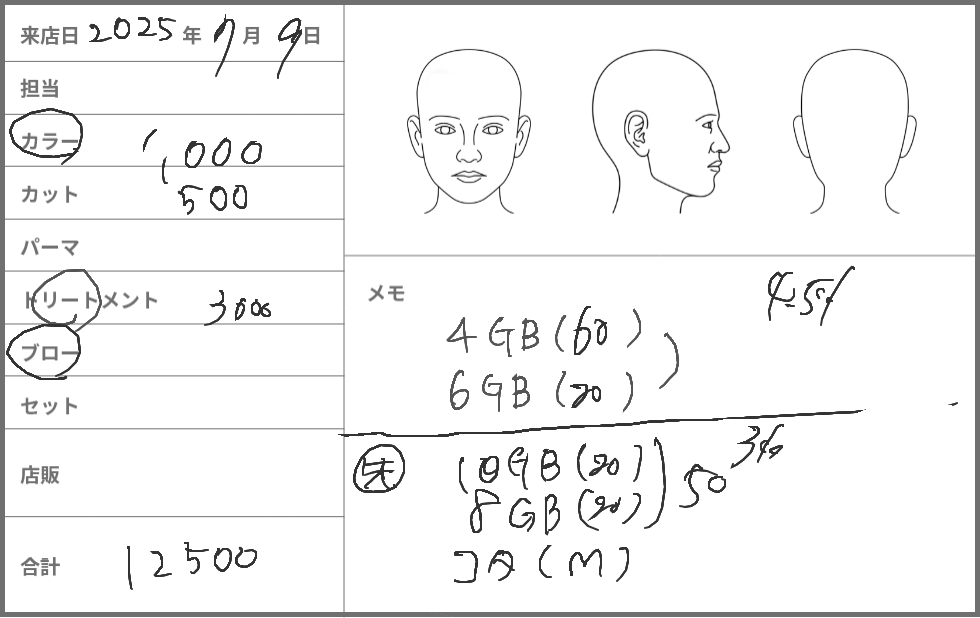 来店日 2025年 7月 9日
担当
カラー 1,000
カット 500
パーマ
トリートメント 3000
ブロー
セット
店販
合計 12500
メモ
4.5%
4GB(60)
6GB(20)
3%
10GB(20)
50
8GB(20)
コタ(M)